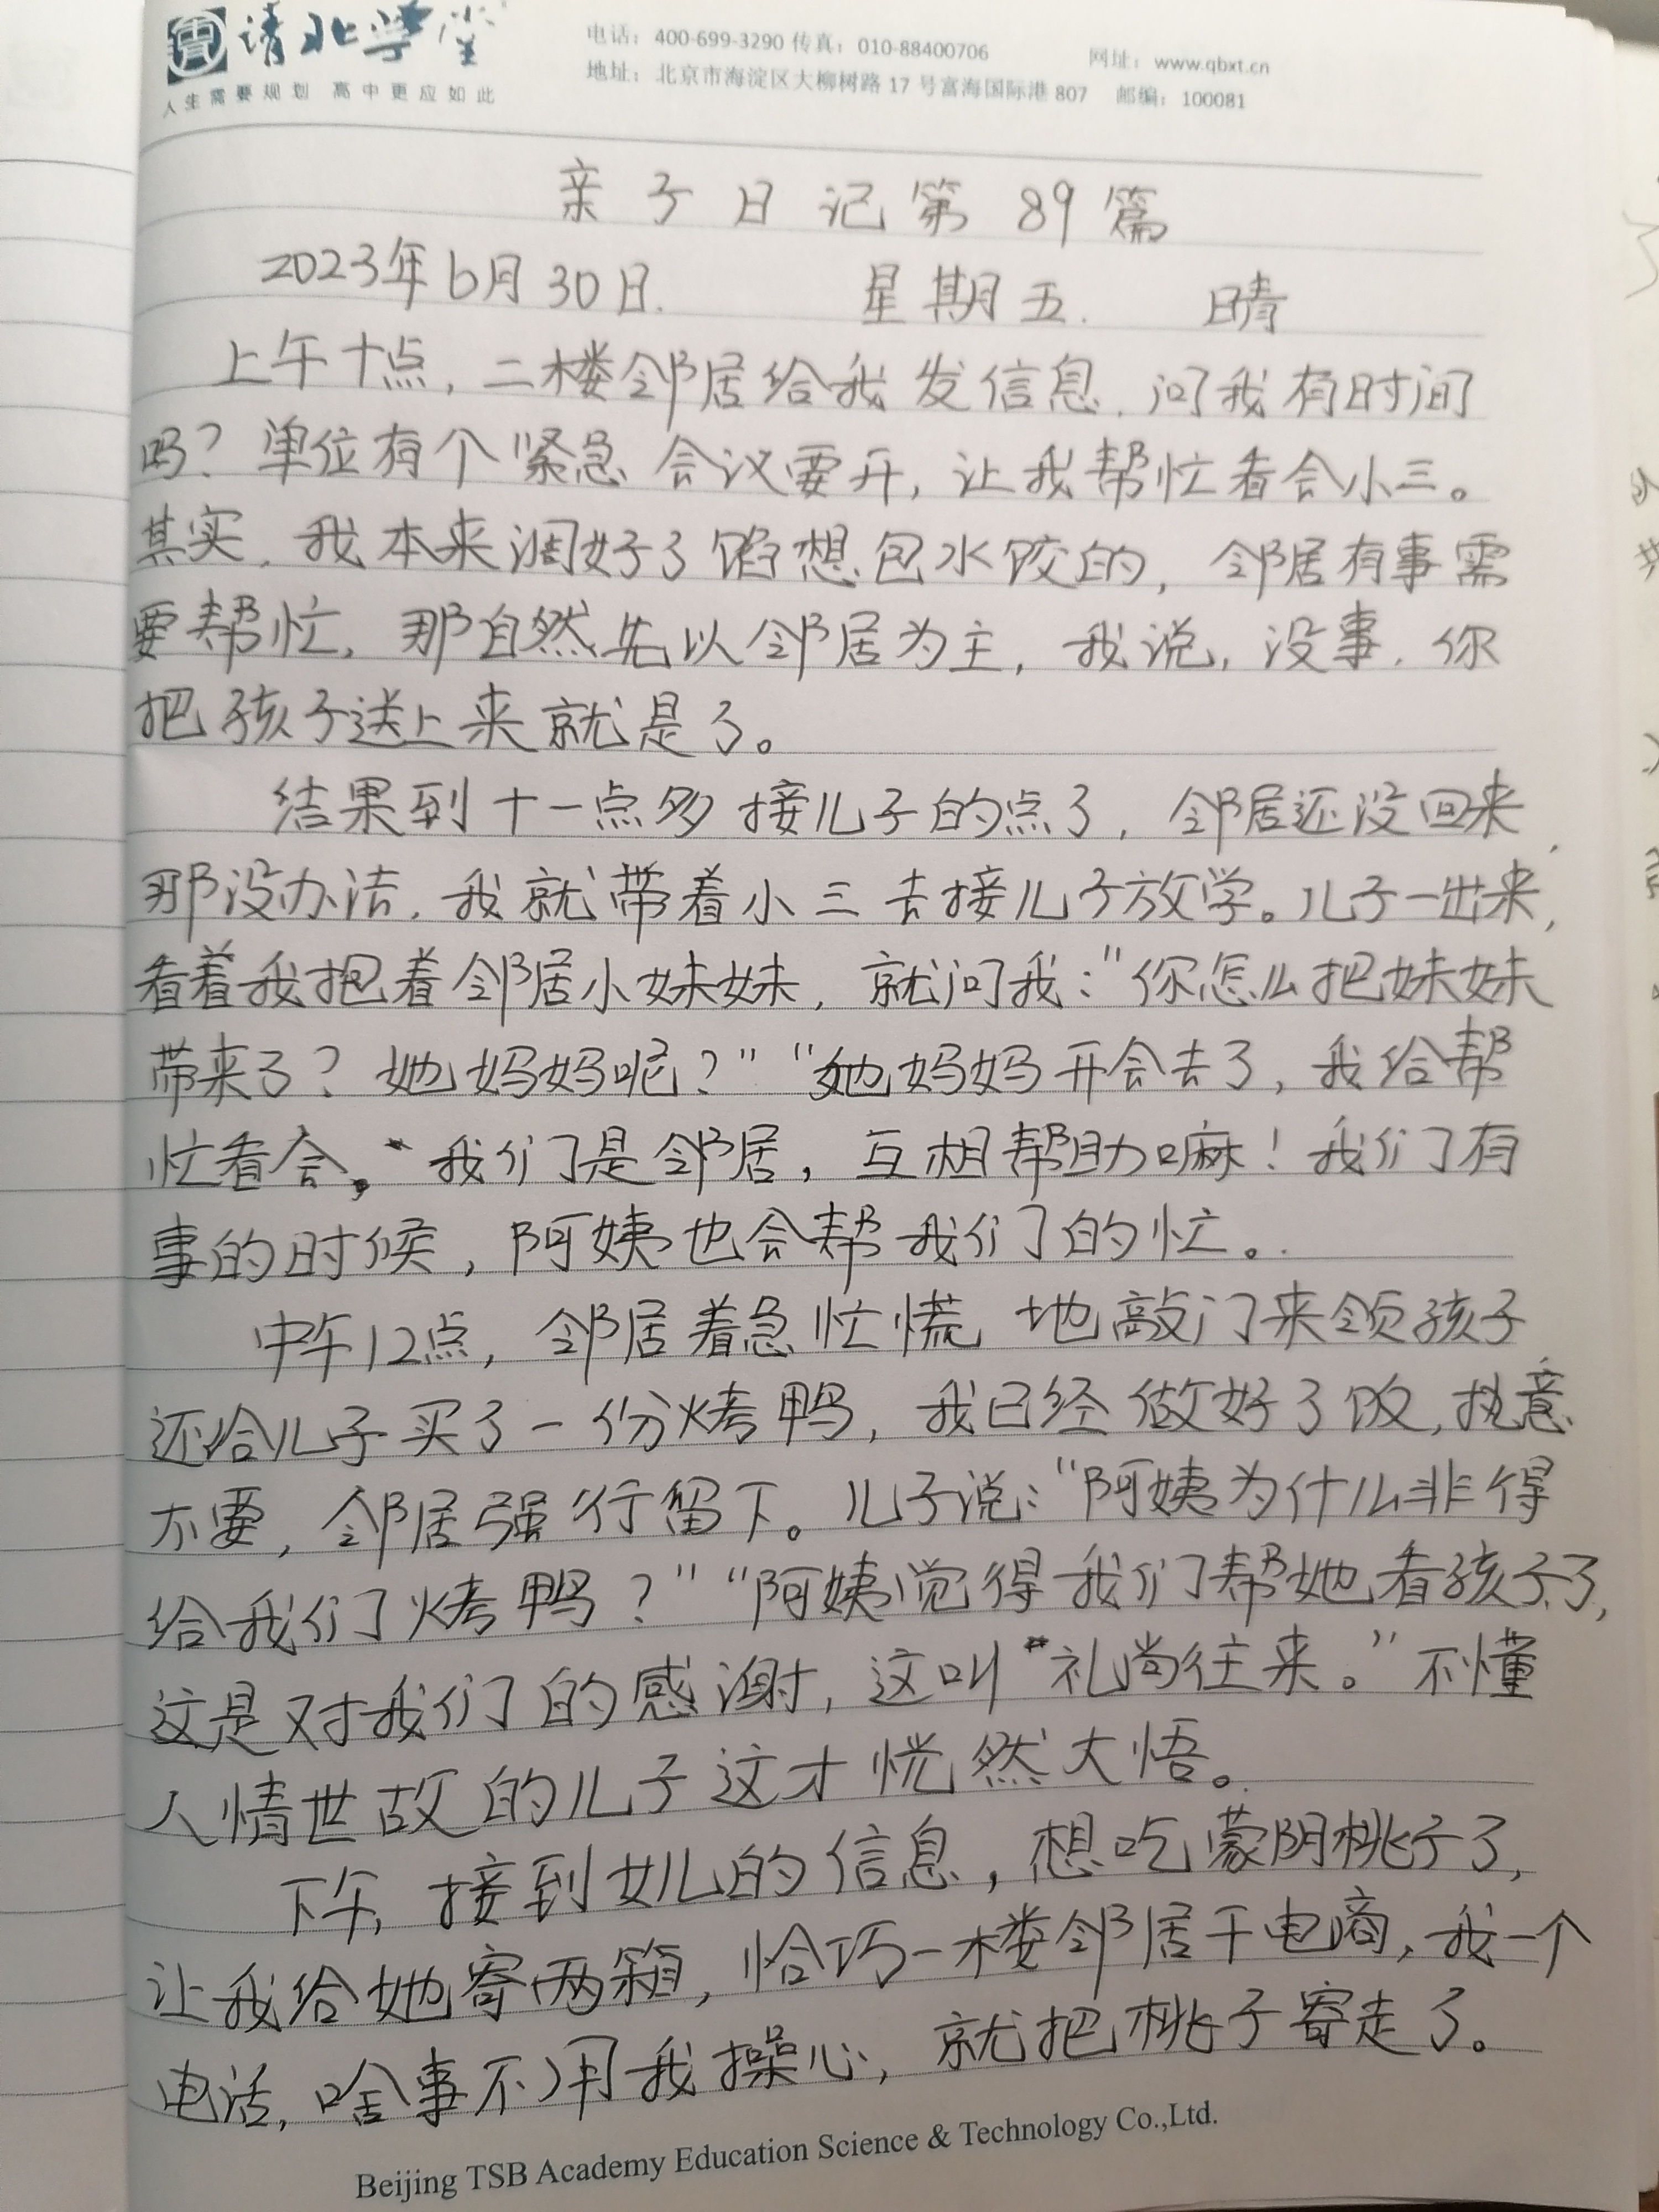 清北学堂
人生需要规划 高中更应如此
电话：400-699-3290 传真：010-88400706 网址：www.qbxt.cn
地址：北京市海淀区大柳树路17号富海国际港807 邮编：100081
亲子日记第89篇
2023年6月30日. 星期五. 晴
上午十点，二楼邻居给我发信息，问我有时间
吗？单位有个紧急会议要开，让我帮忙看会小三。
其实，我本来调好了馅想包水饺的，邻居有事需
要帮忙，那自然先以邻居为主，我说，没事，你
把孩子送上来就是了。
结果到十一点多接儿子的点了，邻居还没回来，
那没办法，我就带着小三去接儿子放学。儿子一出来，
看着我抱着邻居小妹妹，就问我：“你怎么把妹妹
带来了？她妈妈呢？”“她妈妈开会去了，我给帮
忙看会，我们是邻居，互相帮助嘛！我们有
事的时候，阿姨也会帮我们的忙。
中午12点，邻居着急忙慌地敲门来领孩子
还给儿子买了一份烤鸭，我已经做好了饭，执意
不要，邻居强行留下。儿子说：“阿姨为什么非得
给我们烤鸭？”“阿姨觉得我们帮她看孩子了，
这是对我们的感谢，这叫“礼尚往来。”不懂
人情世故的儿子这才恍然大悟。
下午，接到女儿的信息，想吃蒙阴桃子了，
让我给她寄两箱，恰巧一楼邻居干电商，我一个
电话，啥事不用我操心，就把桃子寄走了。
Beijing TSB Academy Education Science & Technology Co.,Ltd.